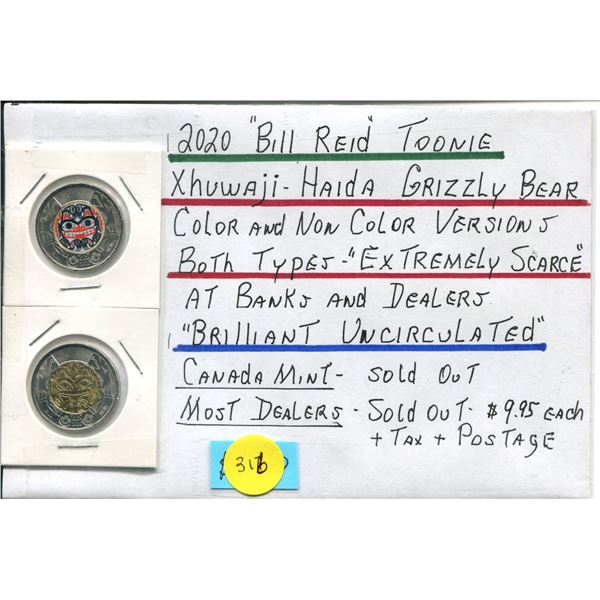 2020 "Bill Reid" Toonie
Xhuwaji - Haida Grizzly Bear
Color and Non Color Versions
Both Types - "Extremely Scarce"
at Banks and Dealers
"Brilliant Uncirculated"
Canada Mint - Sold Out
Most Dealers - Sold Out - $9.95 each
+ Tax + Postage
316